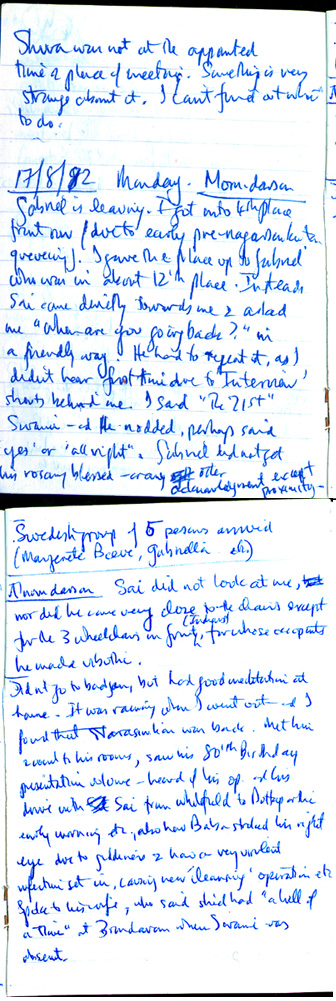 Shura was not at the appointed
time & place of meeting. Something is very
strange about it. I can't find out what
to do.
17/8/82 Monday. Morn. darsan
Gabriel is leaving. I got onto 4th place
front row (due to early pre-nagarsankirtan
queueing). I gave the place up to Gabriel
who was in about 12th place. Instead
Sai came directly towards me & asked
me "when are you going back?" in
a friendly way. He had to repeat it, as I
didn't hear first time due to 'Interview'
shouts behind me. I said "The 21st"
Swami – and He nodded, perhaps said
'yes' or 'all right'. Gabriel did not get
his rosary blessed – or any other
acknowledgment except
proximity –
Swedish group of 5 persons arrived
(Margerete Beeve, Gabriella etc.)
Afternoon darsan Sai did not look at me,
nor did he come very close to the chairs except
for the 3 wheelchairs in front, for whose occupants
he made vibuthi.
Did not go to badjans, but had good meditation at
home. It was raining when I went out and I
found that Narasimhan was back. Met him
& went to his rooms, saw his 80th Birthday
presentation volume – heard of his op. and his
drive with Sai from Whitefield to Puttaparthi
early morning etc., also how Baba stroked his right
eye due to & how a very violent
infection set in, causing new 'cleansing' operation etc.
Spoke to his wife, who said she'd had "a hell of
a time" at Brindavan when Swami was
absent.